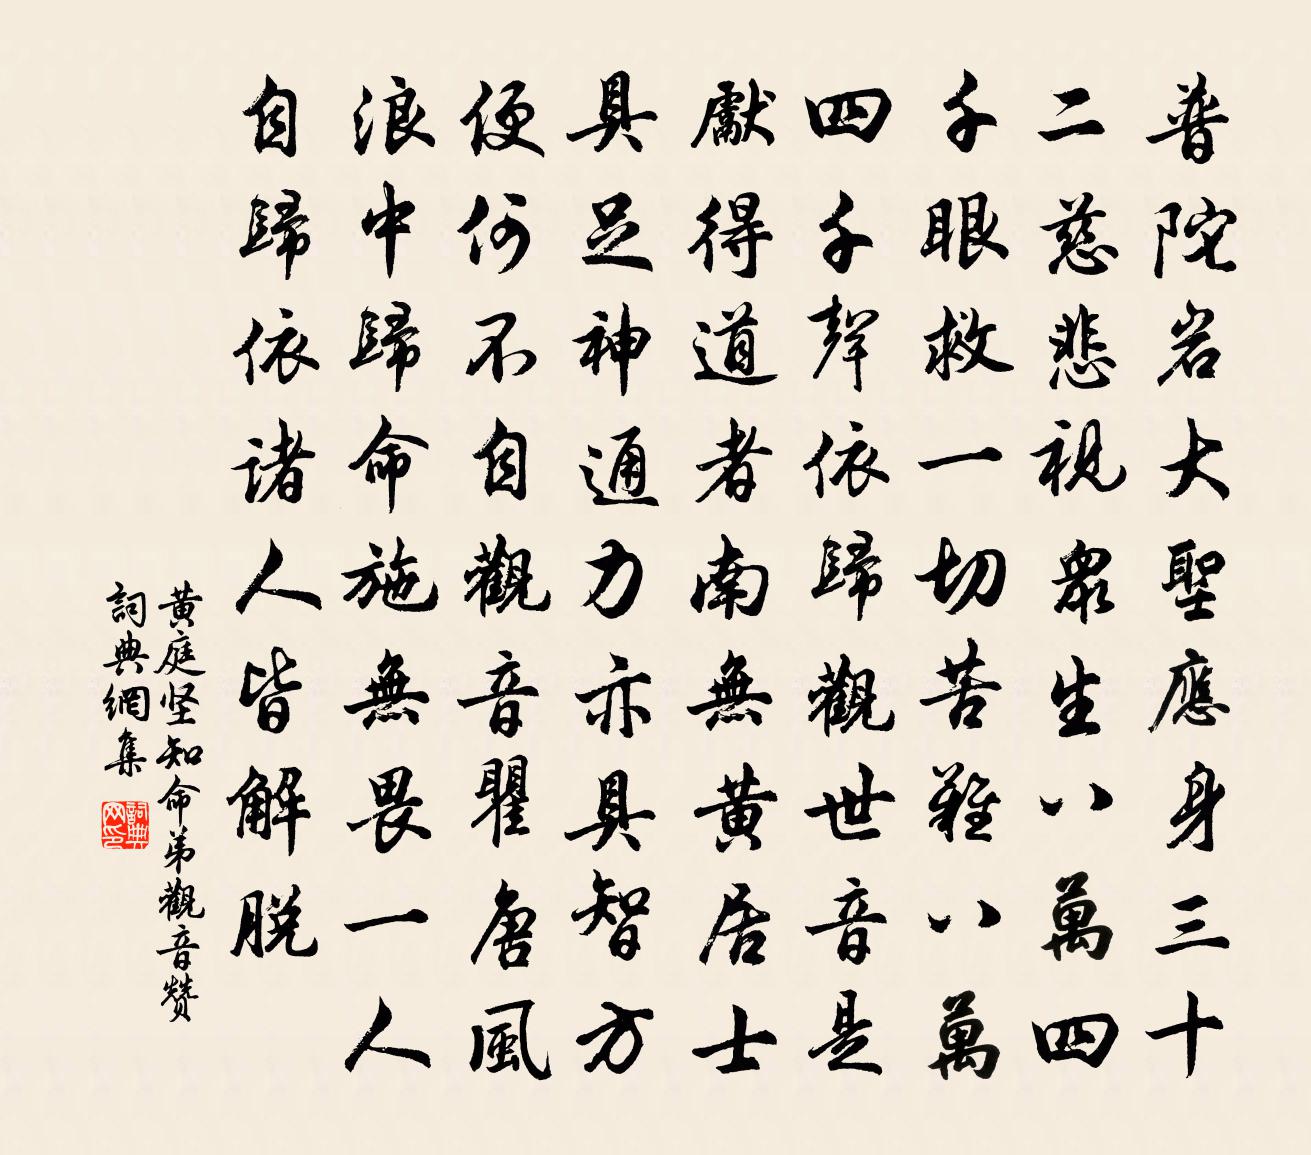 普陀岩大聖應身三十
二慈悲視眾生八萬四
千眼救一切苦難八萬
四千聲依歸觀世音是
獻得道者南無黃居士
具足神通力亦具智方
便何不自觀音瞿唐風
浪中歸命施無畏一人
自歸依諸人皆解脫
黃庭坚知命弟觀音贊
詞典網集
詞典网印